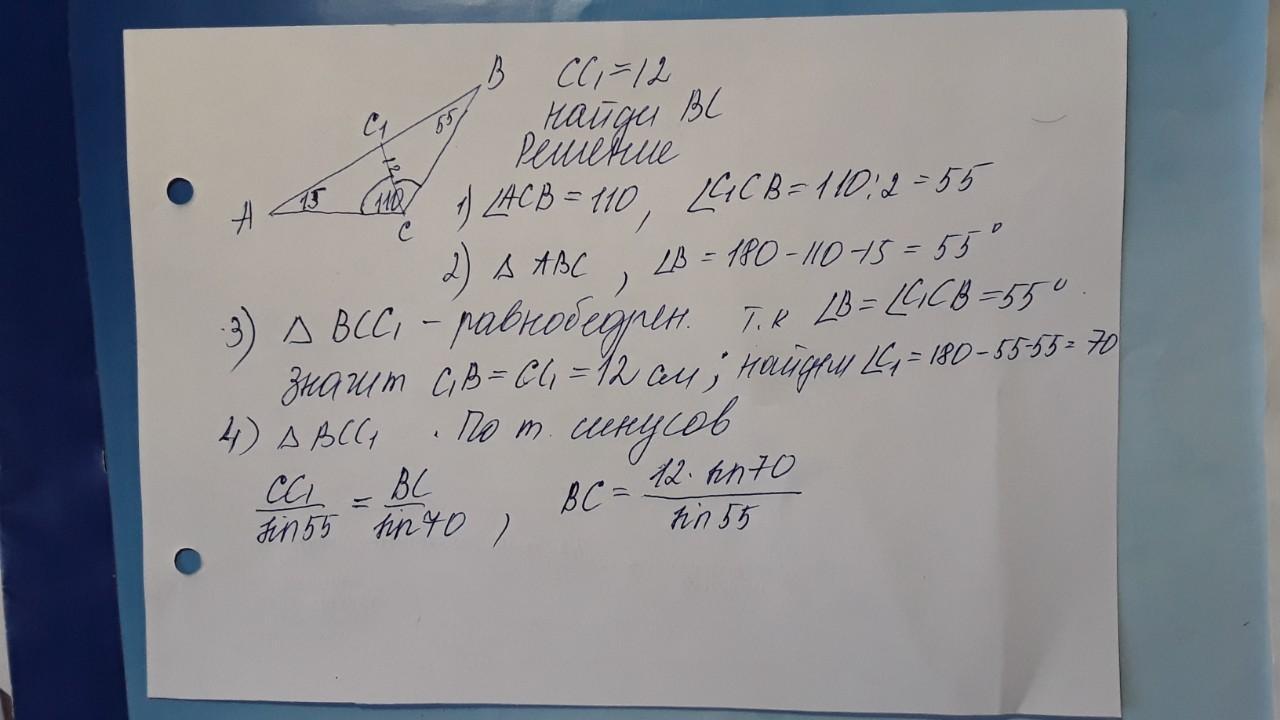 B
CC₁=12
C₁
55
найди BC
Решение
A
15
110
C
1) ∠ACB = 110, ∠C₁CB = 110:2 = 55
2) △ ABC, ∠B = 180 - 110 - 15 = 55°
3) △ BCC₁ - равнобедрен. т.к ∠B = ∠C₁CB = 55°.
значит C₁B = CC₁ = 12 см; найдем ∠C₁ = 180 - 55-55 = 70
4) △ BCC₁. По т. синусов
CC₁/sin55 = BC/sin70, BC = 12·sin70/sin55